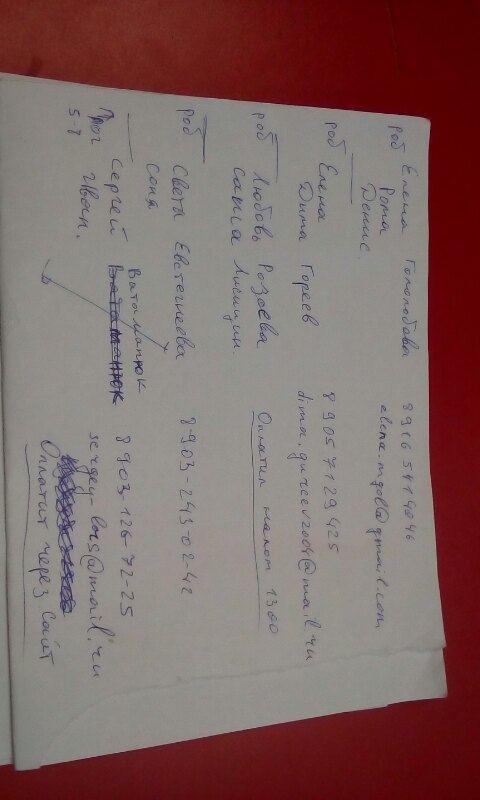 роб Елена Гололобова 8916 5414046
Рома elena.mgol@gmail.com
Денис.
роб Елена 8905 7129425
Дима Гореев dima.gureev2004@mail.ru
роб Любовь Розоева Оплатил налом 1300
Саша Лисицин
роб Света Евстегнеева 8-903-243-02-42
Соня
Прог Сергей Витоманюк 8903-126-72-25
5-7 Иван. sergey-lars@mail.ru
Оплатит через сайт